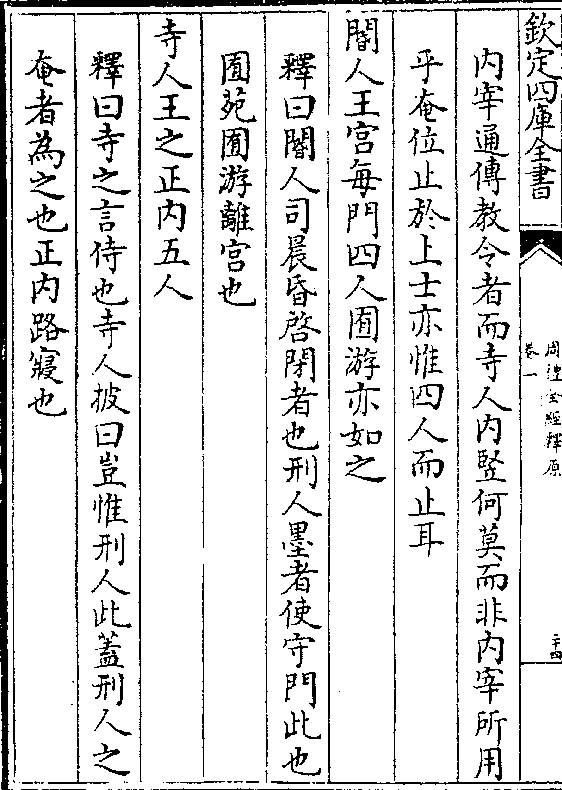 欽定四庫全書
周禮全經釋原
卷一
二十四
内宰通傳教令者而寺人内竪何莫而非内宰所用
乎奄位止於上士亦惟四人而止耳
閽人王宫每門四人囿游亦如之
釋曰閽人司晨昏啓閉者也刑人墨者使守門此也
囿苑囿游離宫也
寺人王之正内五人
釋曰寺之言侍也寺人披曰豈惟刑人此蓋刑人之
奄者為之也正内路寢也